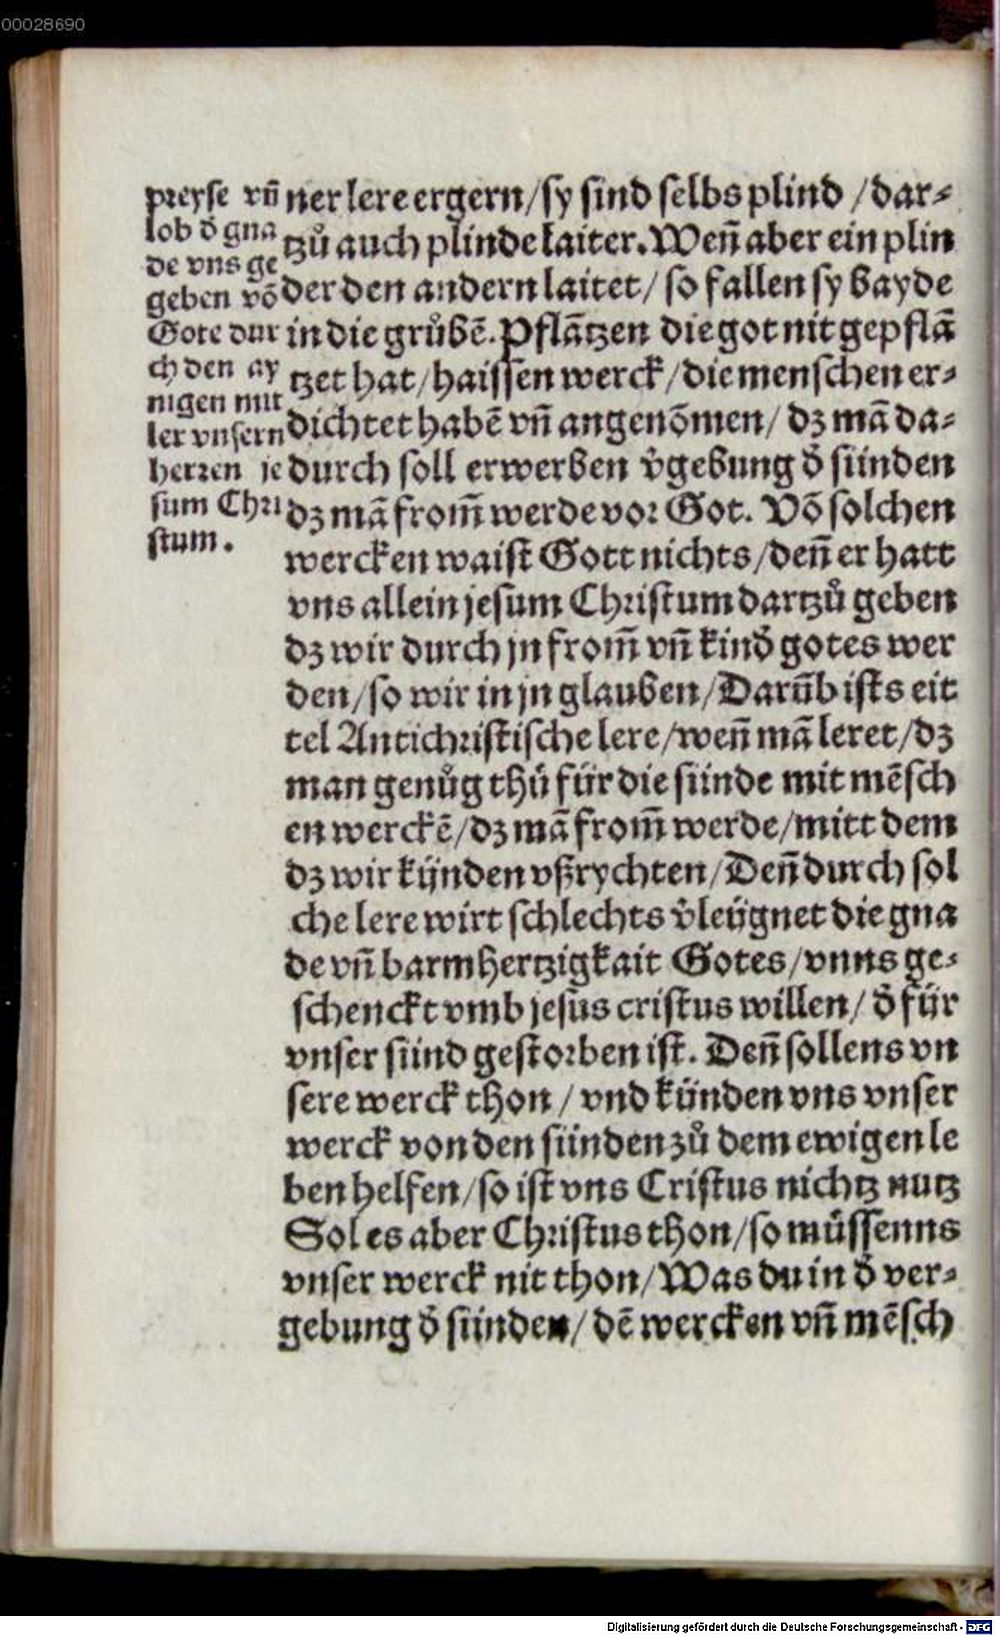 00028690
preyse vñ
lob d̕ gna
de vns ge
geben võ
Gote dur
ch den ay
nigen mit
ler vnsern
herren je
sum Chri
stum.
ner lere ergern/sy sind selbs plind /dar⸗
tzů auch plinde laiter. Weñ aber ein plin
der den andern laitet/ so fallen sy bayde
in die grůbē. Pflātzen die got nit gepflā
tzet hat/haissen werck/die menschen er⸗
dichtet habē vñ angenõmen/ dz mā da⸗
durch soll erwerben v̕gebung d̕ sünden
dz mā from̄ werde vor Got. Võ solchen
wercken waist Gott nichts/deñ er hatt
vns allein jesum Christum dartzů geben
dz wir durch jn from̄ vñ kind̕ gotes wer
den/so wir in jn glauben/Darūb ists eit
tel Antichristische lere/weñ mā leret/dz
man genůg thů für die sünde mit mēsch
en werckē/dz mā from̄ werde/mitt dem
dz wir künden vßrychten/Deñ durch sol
che lere wirt schlechts v̕leügnet die gna
de vñ barmhertzigkait Gotes/vnns ge⸗
schenckt vmb jesus cristus willen/ d̕ für
vnser sünd gestorben ist. Deñ sollens vn
sere werck thon / vnd künden vns vnser
werck von den sünden zů dem ewigen le
ben helfen/so ist vns Cristus nichtz nutz
Sol es aber Christus thon/so müssenns
vnser werck nit thon/Was du in d̕ ver⸗
gebung d̕ sünden/ dē wercken vñ mēsch
Digitalisierung gefördert durch die Deutsche Forschungsgemeinschaft - DFG